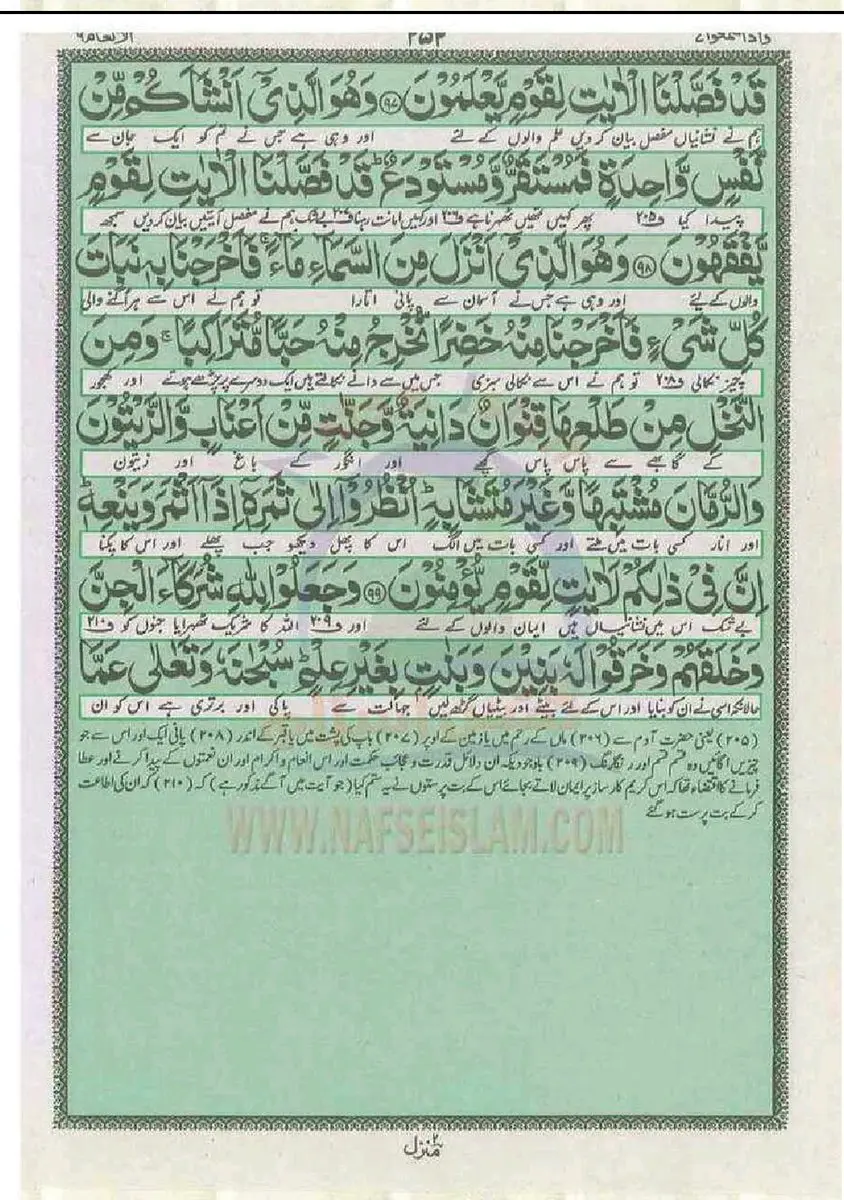 الانعام ٦ ۲۵۲ واذاسمعوا ۷
قَدۡ فَصَّلۡنَا الۡاٰیٰتِ لِقَوۡمٍ یَّعۡلَمُوۡنَ ﴿۹۷﴾ وَهُوَ الَّذِیۡۤ اَنۡشَاَکُمۡ مِّنۡ
ہم نے نشانیاں مفصل بیان کردیں علم والوں کے لئے اور وہی ہے جس نے تم کو ایک جان سے
نَّفۡسٍ وَّاحِدَةٍ فَمُسۡتَقَرٌّ وَّمُسۡتَوۡدَعٌ ؕ قَدۡ فَصَّلۡنَا الۡاٰیٰتِ لِقَوۡمٍ
پیدا کیا ف۲۰۵ پھر کہیں تمہیں ٹھہرنا ہے ف۲۰۶ اور کہیں امانت رہنا ف۲۰۷ بے شک ہم نے مفصل آیتیں بیان کردیں سمجھ
یَّفۡقَهُوۡنَ ﴿۹۸﴾ وَهُوَ الَّذِیۡۤ اَنۡزَلَ مِنَ السَّمَآءِ مَآءً ۚ فَاَخۡرَجۡنَا بِهٖ نَبَاتَ
والوں کے لیے اور وہی ہے جس نے آسمان سے پانی اتارا تو ہم نے اس سے ہر اگنے والی
کُلِّ شَیۡءٍ فَاَخۡرَجۡنَا مِنۡهُ خَضِرًا نُّخۡرِجُ مِنۡهُ حَبًّا مُّتَرَاکِبًا ۚ وَمِنَ
چیز نکالی ف۲۰۸ تو ہم نے اس سے نکالی سبزی جس میں سے دانے نکالتے ہیں ایک دوسرے پر چڑھے ہوئے اور کھجور
النَّخۡلِ مِنۡ طَلۡعِهَا قِنۡوَانٌ دَانِیَةٌ وَّجَنّٰتٍ مِّنۡ اَعۡنَابٍ وَّالزَّیۡتُوۡنَ
کے گابھے سے پاس پاس گچھے اور انگور کے باغ اور زیتون
وَالرُّمَّانَ مُشۡتَبِهًا وَّغَیۡرَ مُتَشَابِهٍ ؕ اُنۡظُرُوۡۤا اِلٰی ثَمَرِهٖۤ اِذَاۤ اَثۡمَرَ وَیَنۡعِهٖ ؕ
اور انار کسی بات میں ملتے اور کسی بات میں الگ اس کا پھل دیکھو جب پھلے اور اس کا پکنا
اِنَّ فِیۡ ذٰلِکُمۡ لَاٰیٰتٍ لِّقَوۡمٍ یُّؤۡمِنُوۡنَ ﴿۹۹﴾ وَجَعَلُوۡا لِلّٰهِ شُرَکَآءَ الۡجِنَّ
بے شک اس میں نشانیاں ہیں ایمان والوں کے لئے اور ف۲۰۹ اللہ کا شریک ٹھہرایا جنوں کو ف۲۱۰
وَخَلَقَهُمۡ وَخَرَقُوۡا لَهٗ بَنِیۡنَ وَبَنٰتٍۭ بِغَیۡرِ عِلۡمٍ ؕ سُبۡحٰنَهٗ وَتَعٰلٰی عَمَّا
حالانکہ اسی نے ان کو بنایا اور اس کے لئے بیٹے اور بیٹیاں گڑھ لیں جہالت سے پاکی اور برتری ہے اس کو ان
(۲۰۵) یعنی حضرت آدم سے (۲۰۶) ماں کے رحم میں یا زمین کے اوپر (۲۰۷) باپ کی پشت میں یا قبر کے اندر (۲۰۸) پانی ایک اور اس سے جو
چیزیں اگائیں وہ قسم قسم اور رنگارنگ (۲۰۹) باوجودیکہ ان دلائل قدرت و عجائب حکمت اور اس انعام و اکرام اور ان نعمتوں کے پیدا کرنے اور عطا
فرمانے کا اقتضاء تھا کہ اس کریم کارساز پر ایمان لاتے بجائے اس کے بت پرستوں نے یہ ستم کیا (جو آیت میں آگے مذکور ہے) کہ (۲۱۰) کہ ان کی اطاعت
کر کے بت پرست ہوگئے
WWW.NAFSEISLAM.COM
منزل ۲